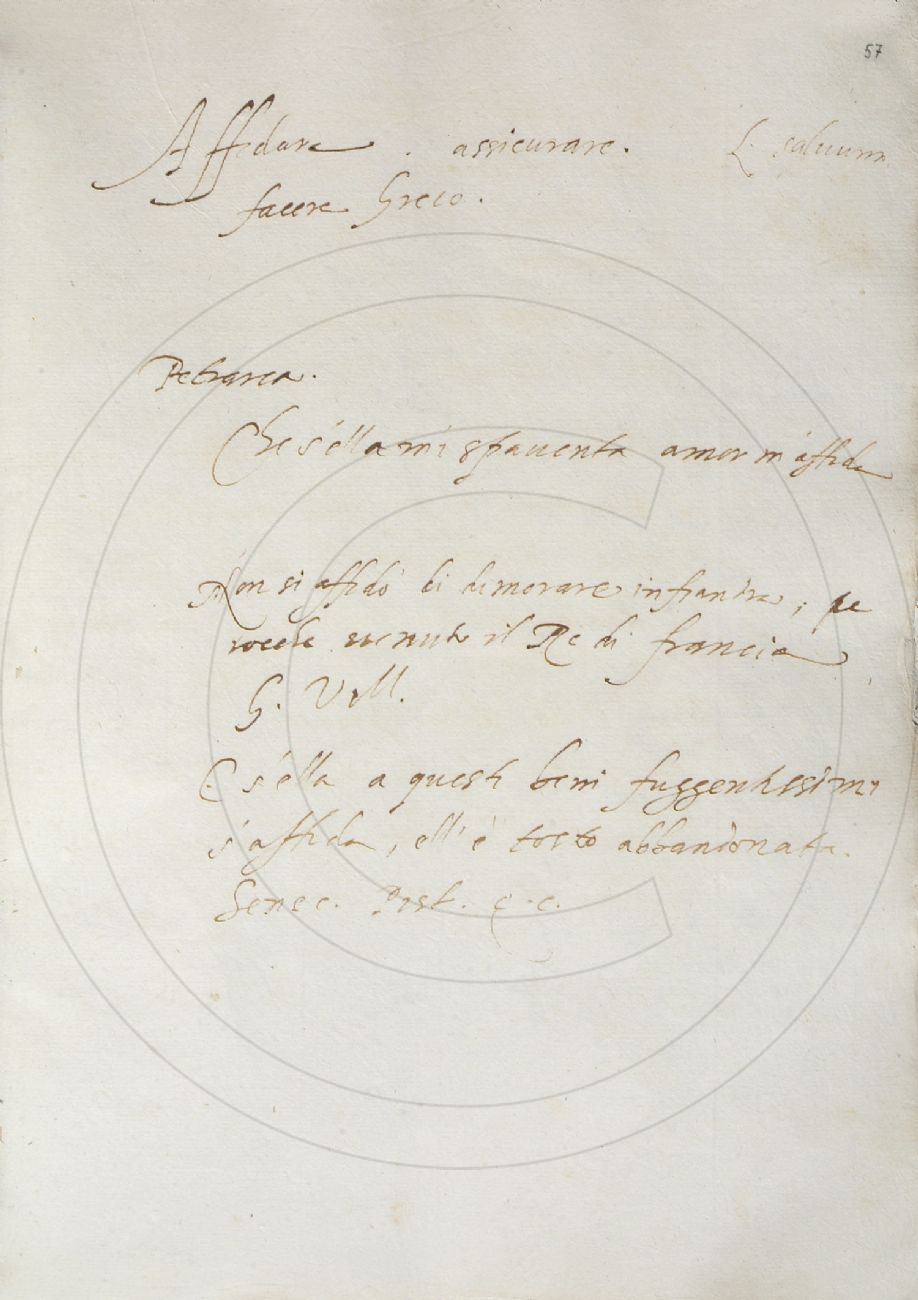 57
Affidare. assicurare. L. saluum
facere Greco.
Petrarca.
Che s'ella mi spauenta amor m'affida
Non si affidò di dimorare in fiandra, pe
roche uenuto il Re di francia
G. Vill.
E s'ella a questi beni fuggentissimi
s'affida, ell'è tosto abbandonata.
Senec. Pist.